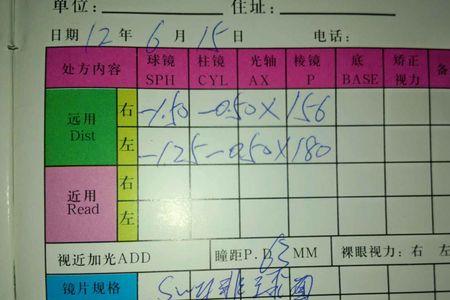 单位: 住址:
日期 12 年 6 月 15 日 电话:
处方内容 球镜 SPH 柱镜 CYL 光轴 AX 棱镜 P 底 BASE 矫正视力 备
远用 Dist 右 -1.50 -0.50 X 156
左 -1.25 -0.50 X 180
近用 Read 右
左
视近加光ADD 瞳距P.D 63 MM 裸眼视力: 右 左
镜片规格 非球面